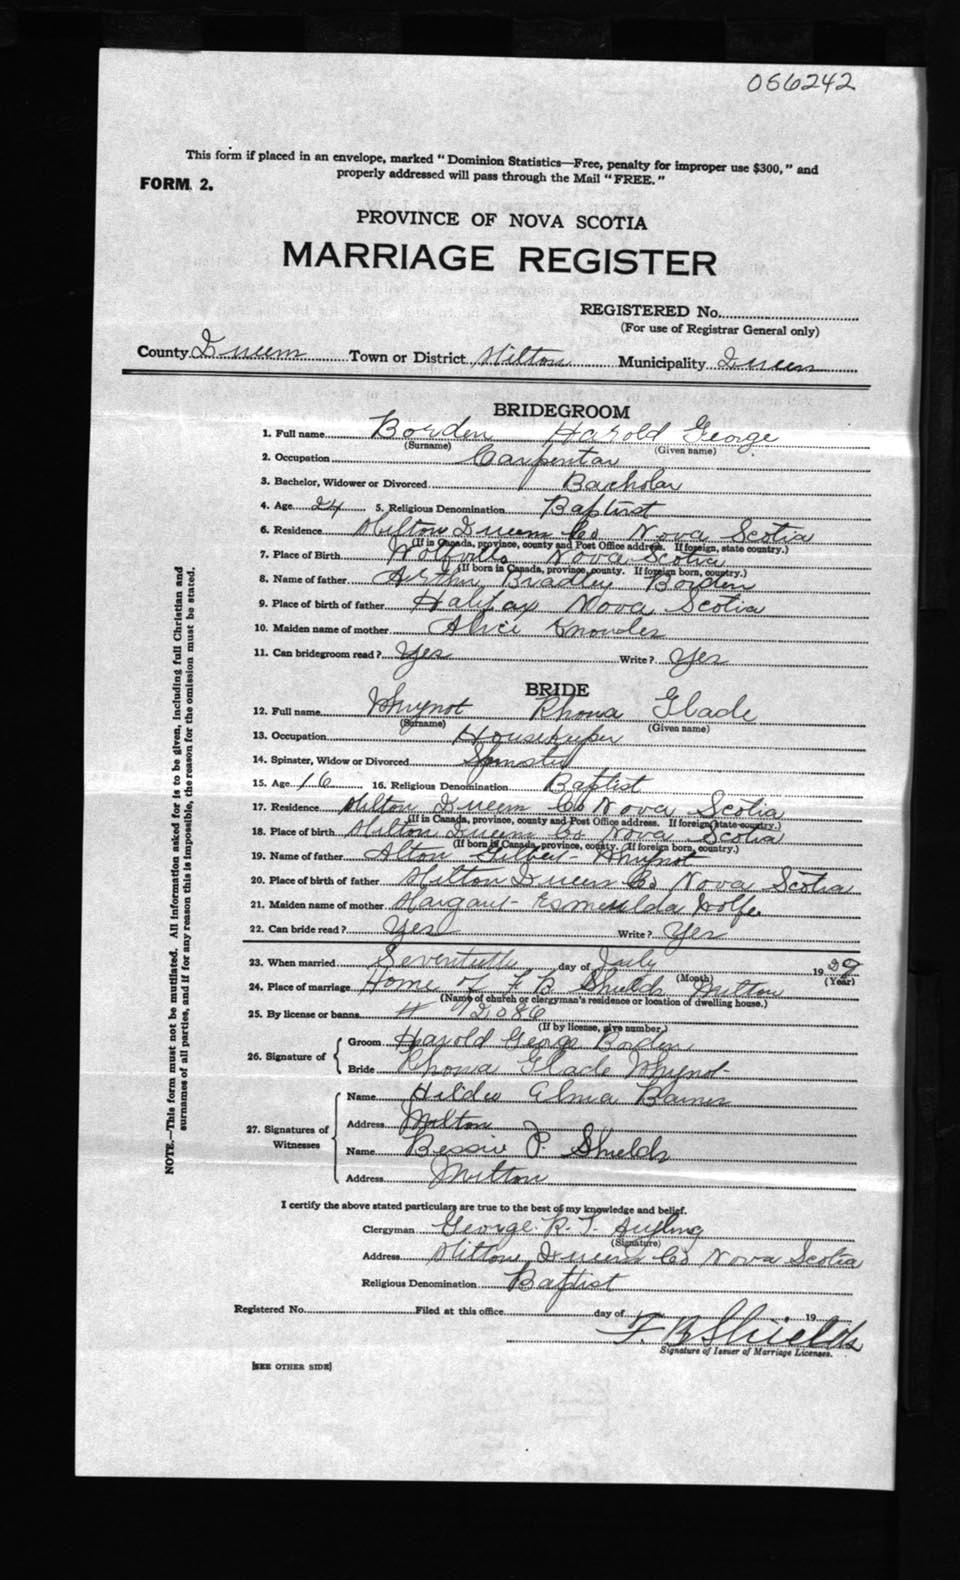 056242
This form if placed in an envelope, marked "Dominion Statistics—Free, penalty for improper use $300," and
properly addressed will pass through the Mail "FREE."
FORM 2.
PROVINCE OF NOVA SCOTIA
MARRIAGE REGISTER
REGISTERED No.
(For use of Registrar General only)
County Queens Town or District Milton Municipality Queens
BRIDEGROOM
1. Full name Borden Harold George
(Surname) (Given name)
2. Occupation Carpentar
3. Bachelor, Widower or Divorced Bachelor
4. Age 24 5. Religious Denomination Baptist
6. Residence Milton Queens Co Nova Scotia
(If in Canada, province, county and Post Office address. If foreign, state country.)
7. Place of Birth Wolfville Nova Scotia
(If born in Canada, province, county. If foreign born, country.)
8. Name of father Arthur Bradley Borden
9. Place of birth of father Halifax Nova Scotia
10. Maiden name of mother Alice Knowles
11. Can bridegroom read? Yes Write? Yes
BRIDE
12. Full name Whynot Rhona Glade
(Surname) (Given name)
13. Occupation Housekeeper
14. Spinster, Widow or Divorced Spinster
15. Age 16 16. Religious Denomination Baptist
17. Residence Milton Queens Co Nova Scotia
(If in Canada, province, county and Post Office address. If foreign, state country.)
18. Place of birth Milton Queens Co Nova Scotia
(If born in Canada, province, county. If foreign born, country.)
19. Name of father Alton Gilbert Whynot
20. Place of birth of father Milton Queens Co Nova Scotia
21. Maiden name of mother Margaret Esmerulda Wolfe
22. Can bride read? Yes Write? Yes
23. When married Seventeeth day of July 1929
(Month) (Year)
24. Place of marriage Home of F B Shields Milton
(Name of church or clergyman's residence or location of dwelling house.)
25. By license or banns # 12086
(If by license, give number.)
26. Signature of
Groom Harold George Borden
Bride Rhona Glade Whynot
27. Signatures of Witnesses
Name Hilda Elma
Address Milton
Name Bessie P. Shields
Address Milton
I certify the above stated particulars are true to the best of my knowledge and belief.
Clergyman George R. T. Ayling
(Signature)
Address Milton Queens Co Nova Scotia
Religious Denomination Baptist
Registered No. Filed at this office day of 19
F B Shields
Signature of Issuer of Marriage Licenses.
[SEE OTHER SIDE]
NOTE.—This form must not be mutilated. All information asked for is to be given, including full Christian and
surnames of all parties, and if for any reason this is impossible, the reason for the omission must be stated.